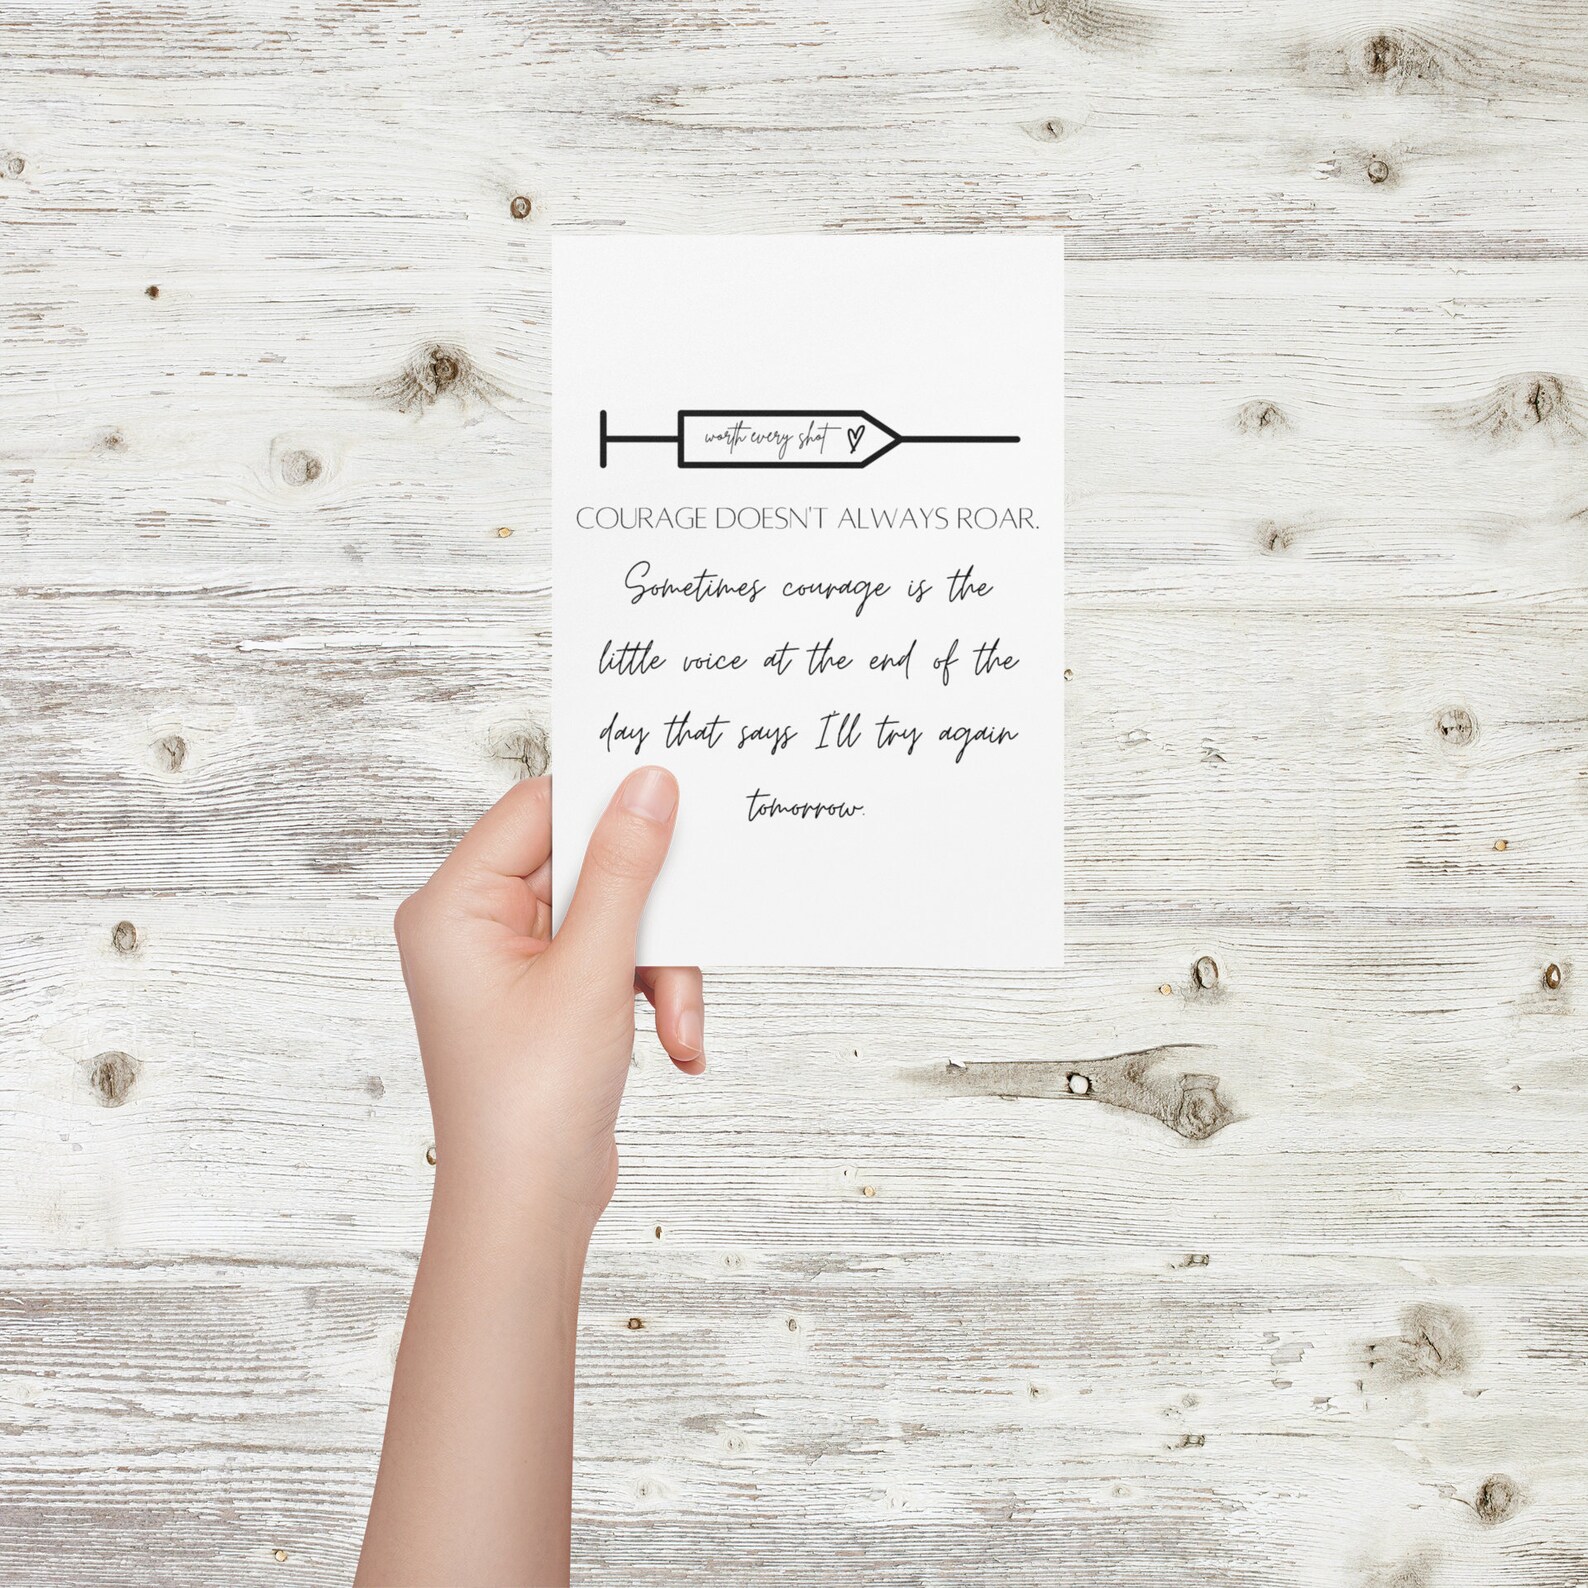 worth every shot
COURAGE DOESN'T ALWAYS ROAR.
Sometimes courage is the
little voice at the end of the
day that says I'll try again
tomorrow.